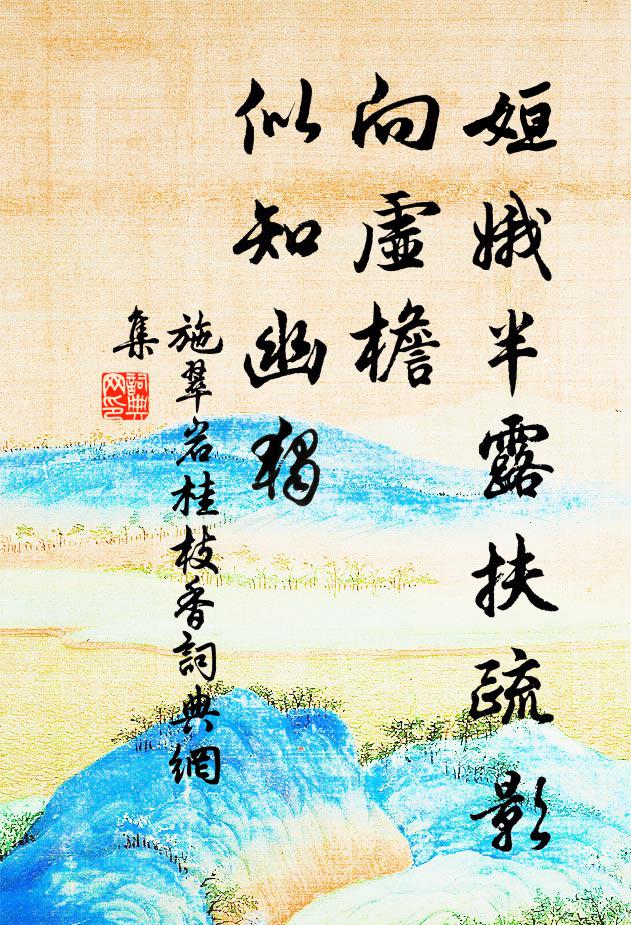 姮娥半露扶疏影
向虛檐
似知幽獨
施翠岩桂枝香詞典網
集
詞典
网印